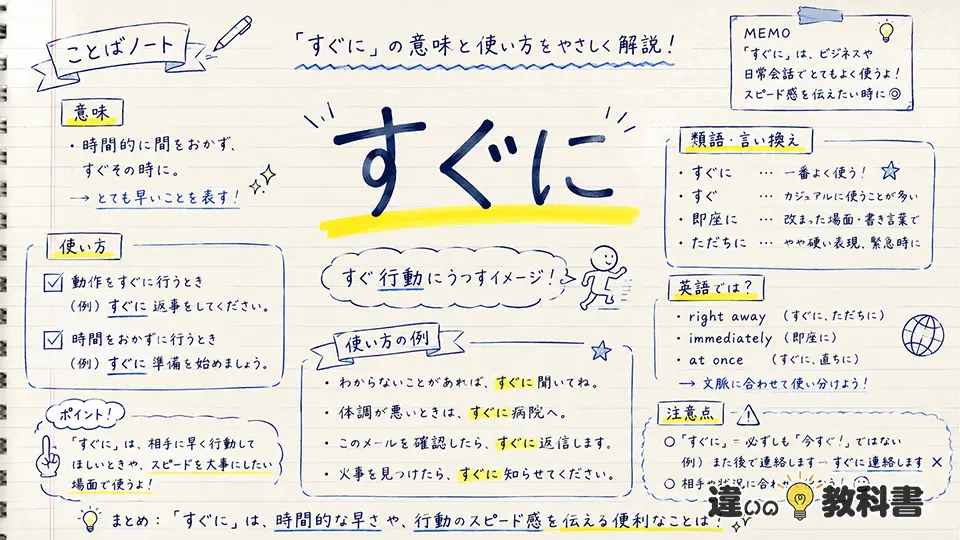 ことばノート
「すぐに」の意味と使い方をやさしく解説！
MEMO
「すぐに」は、ビジネスや
日常会話でとてもよく使うよ！
スピード感を伝えたい時に◎
意味
・時間的に間をおかず、
すぐその時に。
→ とても早いことを表す！
すぐに
すぐ行動にうつすイメージ！
使い方
動作をすぐに行うとき
（例）すぐに返事をしてください。
時間をおかずに行うとき
（例）すぐに準備を始めましょう。
ポイント！
「すぐに」は、相手に早く行動して
ほしいときや、スピードを大事にしたい
場面で使うよ！
使い方の例
・わからないことがあれば、すぐに聞いてね。
・体調が悪いときは、すぐに病院へ。
・このメールを確認したら、すぐに返信します。
・火事を見つけたら、すぐに知らせてください。
類語・言い換え
・すぐに … 一番よく使う！
・すぐ … カジュアルに使うことが多い
・即座に … 改まった場面・書き言葉で
・ただちに … やや硬い表現、緊急時に
英語では？
・right away （すぐに、ただちに）
・immediately （即座に）
・at once （すぐに、直ちに）
→ 文脈に合わせて使い分けよう！
注意点
○「すぐに」＝必ずしも「今すぐ！」ではない
例）また後で連絡します→すぐに連絡します ×
○ 相手や状況に合わ
まとめ：「すぐに」は、時間的な早さや、行動のスピード感を伝える便利なことば！
違いの教科書